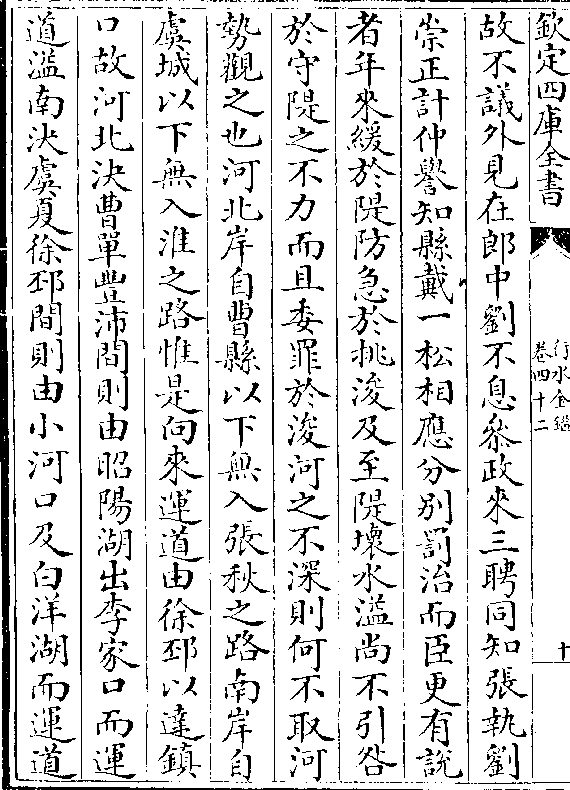 欽定四庫全書
行水金鑑
卷四十二
十
故不議外見在郎中劉不息叅政來三聘同知張執劉
崇正計仲譽知縣戴一松相應分别罰治而臣更有說
者年來緩於隄防急於挑浚及至隄壞水溢尚不引咎
於守隄之不力而且委罪於浚河之不深則何不取河
勢觀之也河北岸自曹縣以下無入張秋之路南岸自
虞城以下無入淮之路惟是向來運道由徐邳以達鎮
口故河北決曹單豐沛間則由昭陽湖出李家口而運
道溢南決虞夏徐邳間則由小河口及白洋湖而運道